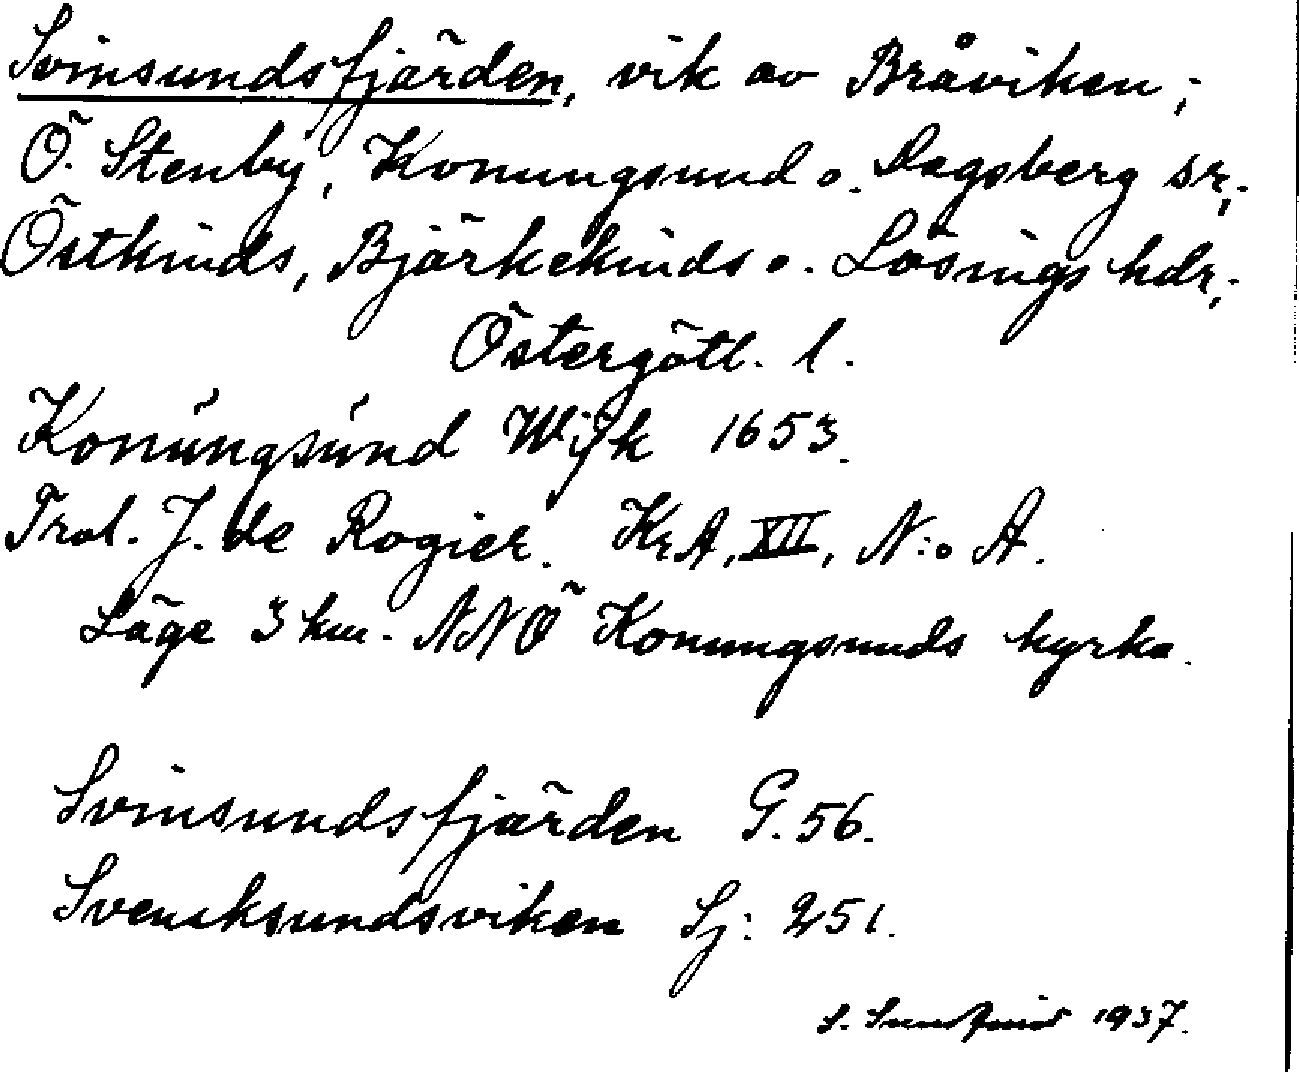 Svinsundsfjärden, vik av Bråviken;
Ö. Stenby, Konungsund o. Dagsberg sr,;
Östkinds, Björkekinds o. Lösings hdr,;
Östergötl. l.
Konúngsúnd Wijk 1653.
Trol. J. de Rogier. KrA, XII, N:o A.
Läge 3 km. NNÖ Konungsunds kyrka.
Svinsundsfjärden G. 56.
Svensksundsviken Sj: 251.
S. 1937.